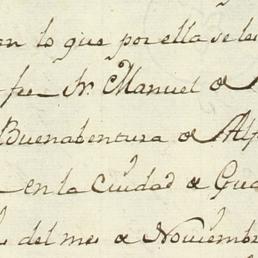 en lo que por ella se le
fee Fr. Manuel de
Buenabentura de Alf
en la Ciudad de Gua
del mes de Noviembr